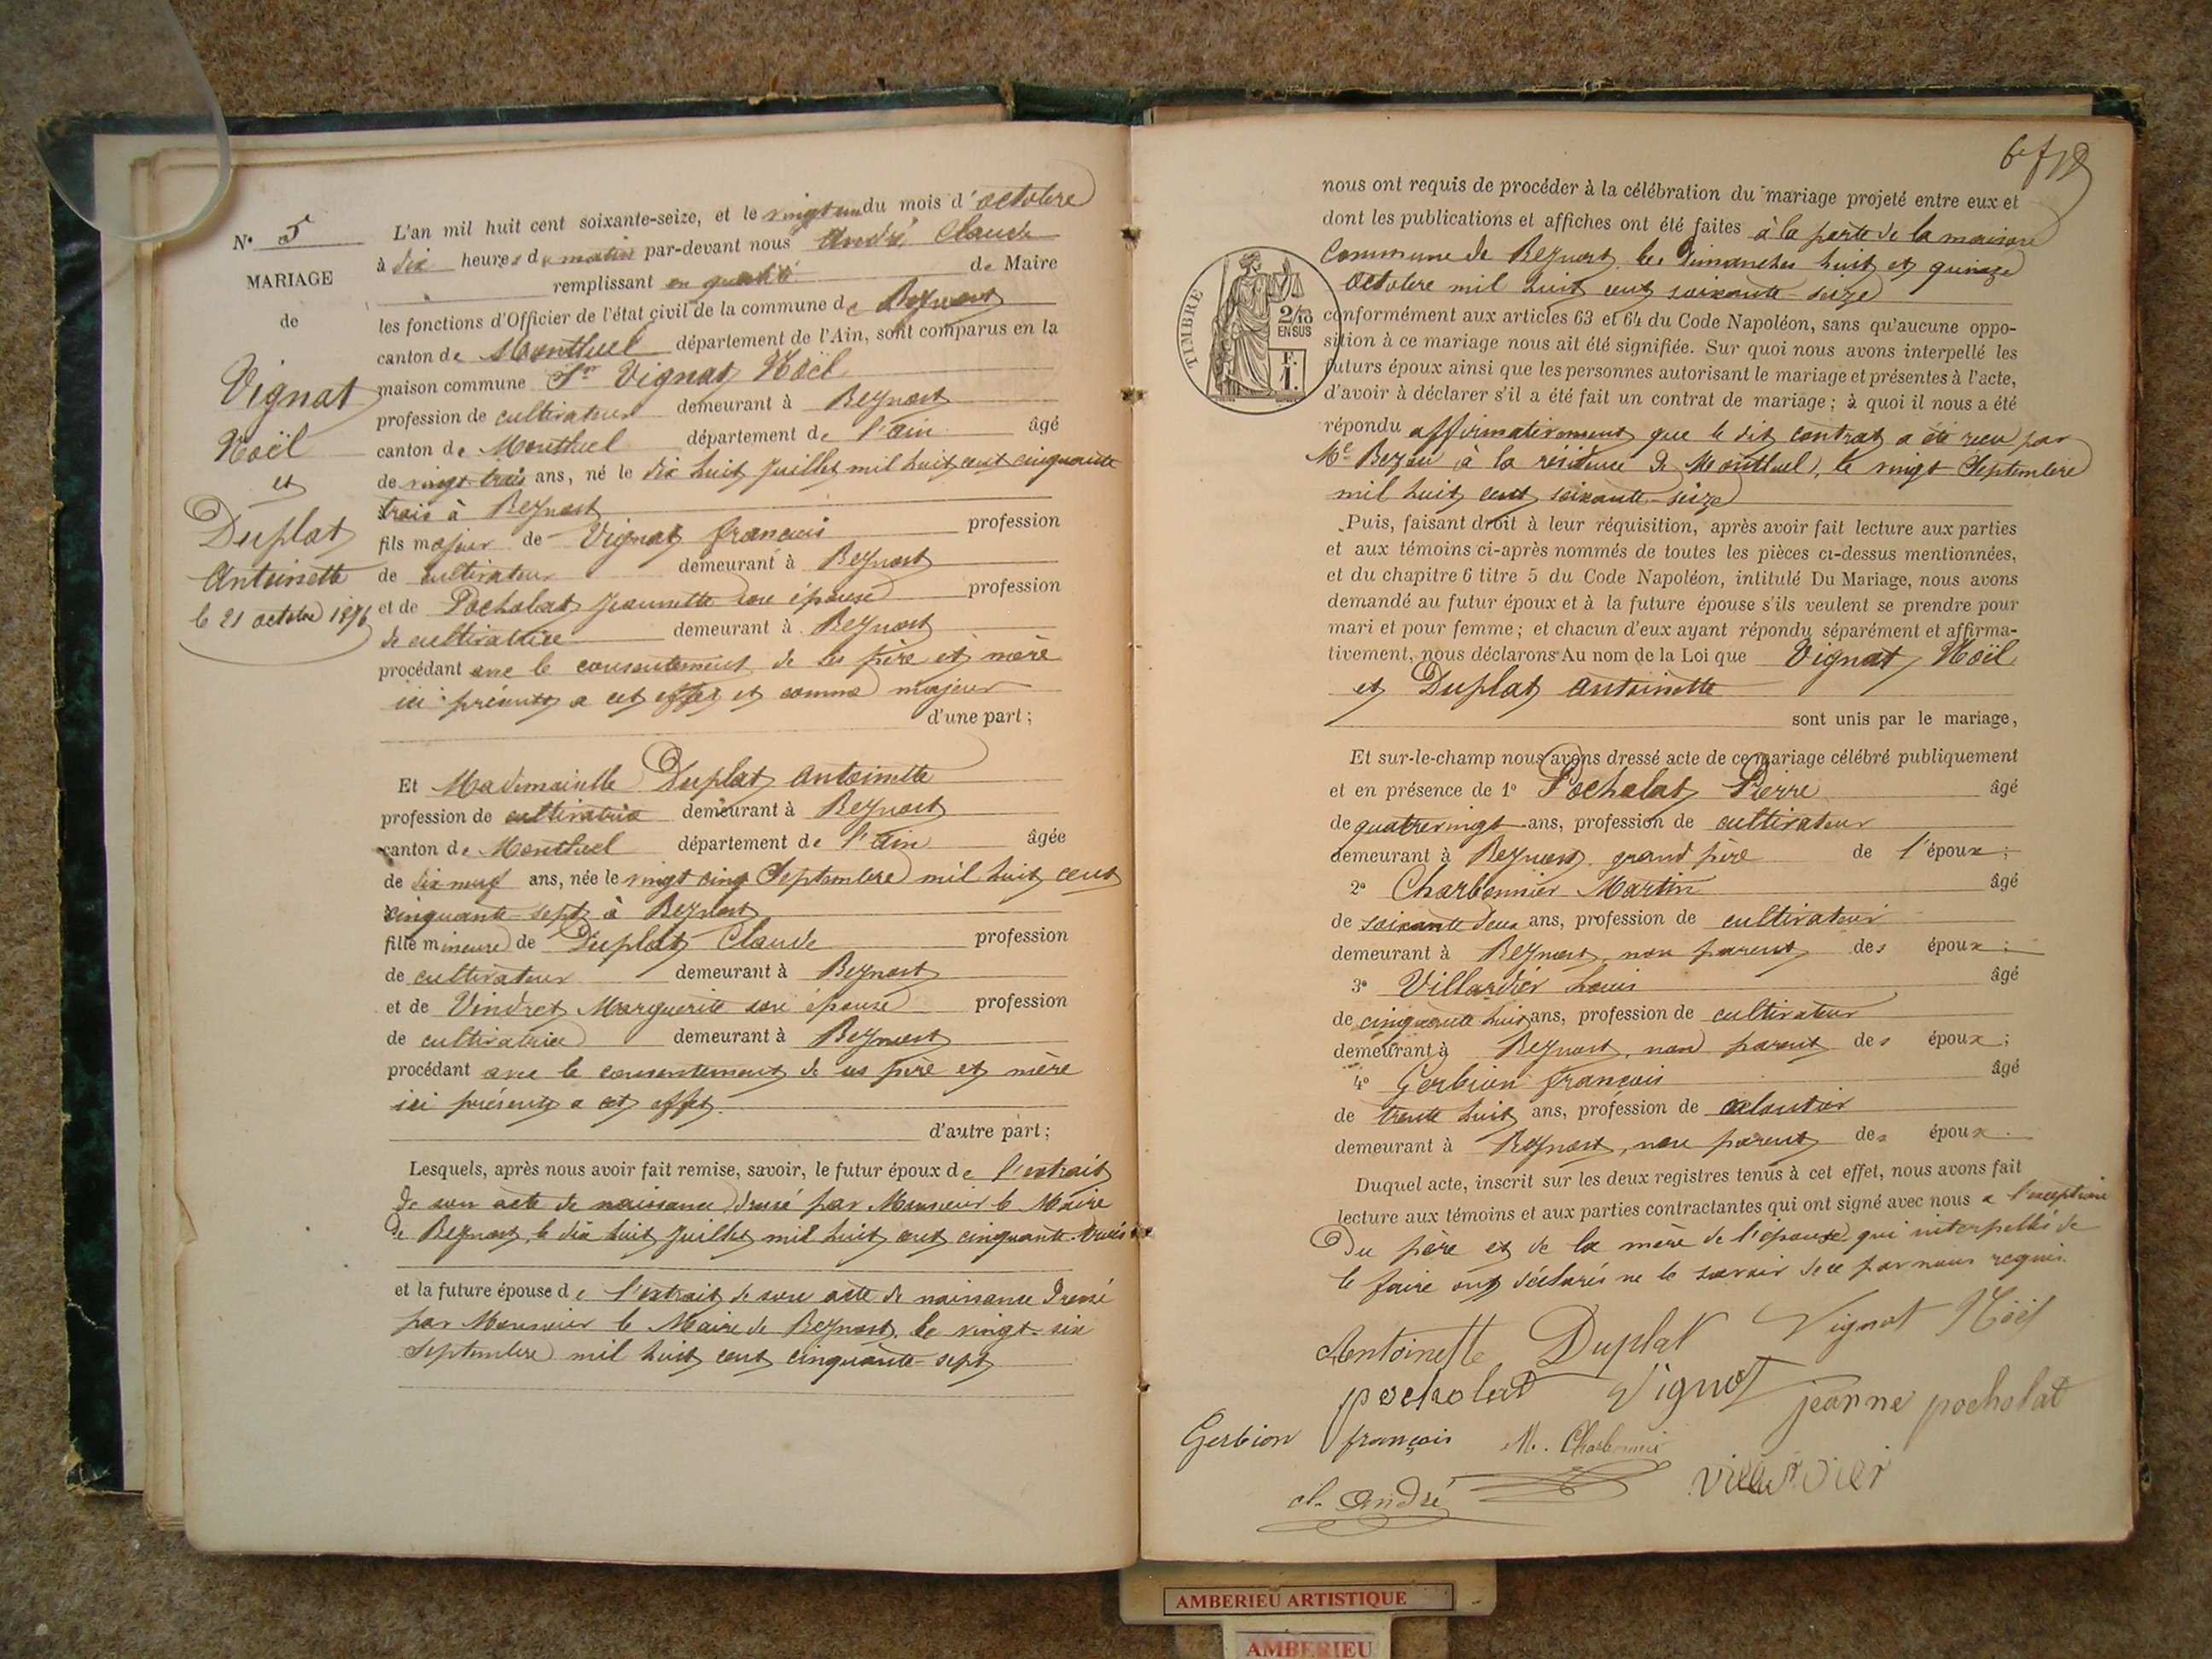 N° 5
MARIAGE
de
Vignat
Noël
et
Duplat
Antoinette
le 21 octobre 1876
L'an mil huit cent soixante-seize, et le vingt un du mois d'octobre
à dix heures du matin par-devant nous André Claude
remplissant en qualité de Maire
les fonctions d'Officier de l'état civil de la commune de Beynost
canton de Montluel département de l'Ain, sont comparus en la
maison commune Sr Vignat Noël
profession de cultivateur demeurant à Beynost
canton de Montluel département de l'ain âgé
de vingt trois ans, né le dix huit juillet mil huit cent cinquante
trois à Beynost
fils majeur de Vignat françois profession
de cultivateur demeurant à Beynost
et de Pocholat Jeannette son épouse profession
de cultivatrice demeurant à Beynost
procédant avec le consentement de ses père et mère
ici présents a cet effet et comme majeur
d'une part;
Et Mademoiselle Duplat Antoinette
profession de cultivatrice demeurant à Beynost
canton de Montluel département de l'ain âgée
de dix neuf ans, née le vingt cinq Septembre mil huit cent
cinquante sept à Beynost
fille mineure de Duplat Claude profession
de cultivateur demeurant à Beynost
et de Vindret Marguerite son épouse profession
de cultivatrice demeurant à Beynost
procédant avec le consentement de ses père et mère
ici présents a cet effet.
d'autre part;
Lesquels, après nous avoir fait remise, savoir, le futur époux de l'extrait
de son acte de naissance dressé par Monsieur le Maire
de Beynost, le dix huit juillet mil huit cent cinquante-trois
et la future épouse de l'extrait de son acte de naissance dressé
par Monsieur le Maire de Beynost, le vingt-six
Septembre mil huit cent cinquante-sept
nous ont requis de procéder à la célébration du mariage projeté entre eux et
dont les publications et affiches ont été faites à la porte de la maison
Commune de Beynost, les Dimanches huit et quinze
Octobre mil huit cent soixante-seize
TIMBRE
2/10
EN SUS
F.
1.
conformément aux articles 63 et 64 du Code Napoléon, sans qu'aucune oppo-
sition à ce mariage nous ait été signifiée. Sur quoi nous avons interpellé les
futurs époux ainsi que les personnes autorisant le mariage et présentes à l'acte,
d'avoir à déclarer s'il a été fait un contrat de mariage; à quoi il nous a été
répondu affirmativement que le dit contrat a été recu par
Me à la résidence de Montluel, le vingt Septembre
mil huit cent soixante-seize
Puis, faisant droit à leur réquisition, après avoir fait lecture aux parties
et aux témoins ci-après nommés de toutes les pièces ci-dessus mentionnées,
et du chapitre 6 titre 5 du Code Napoléon, intitulé Du Mariage, nous avons
demandé au futur époux et à la future épouse s'ils veulent se prendre pour
mari et pour femme; et chacun d'eux ayant répondu séparément et affirma-
tivement, nous déclarons Au nom de la Loi que Vignat Noël
et Duplat Antoinette
sont unis par le mariage,
Et sur-le-champ nous avons dressé acte de ce mariage célébré publiquement
et en présence de 1° Pocholat Pierre âgé
de quatrevingt ans, profession de cultivateur
demeurant à Beynost, grand père de l'époux;
2° Charbonnier Martin âgé
de soixante deux ans, profession de cultivateur
demeurant à Beynost, non parent des époux;
3° Villardier Louis âgé
de cinquante huit ans, profession de cultivateur
demeurant à Beynost, non parent des époux;
4° Gerbion françois âgé
de trente huit ans, profession de
demeurant à Beynost, non parent des époux.
Duquel acte, inscrit sur les deux registres tenus à cet effet, nous avons fait
lecture aux témoins et aux parties contractantes qui ont signé avec nous a l'exception
Du père et de la mère de l'épouse qui interpellés de
le faire ont déclarés ne le savoir de ce par nous requis.
Antoinette Duplat Vignat Noël
pocholat Vignat jeanne pocholat
Gerbion françois M. Charbonnier
cl. André Villardier
AMBERIEU ARTISTIQUE
AMBERIEU